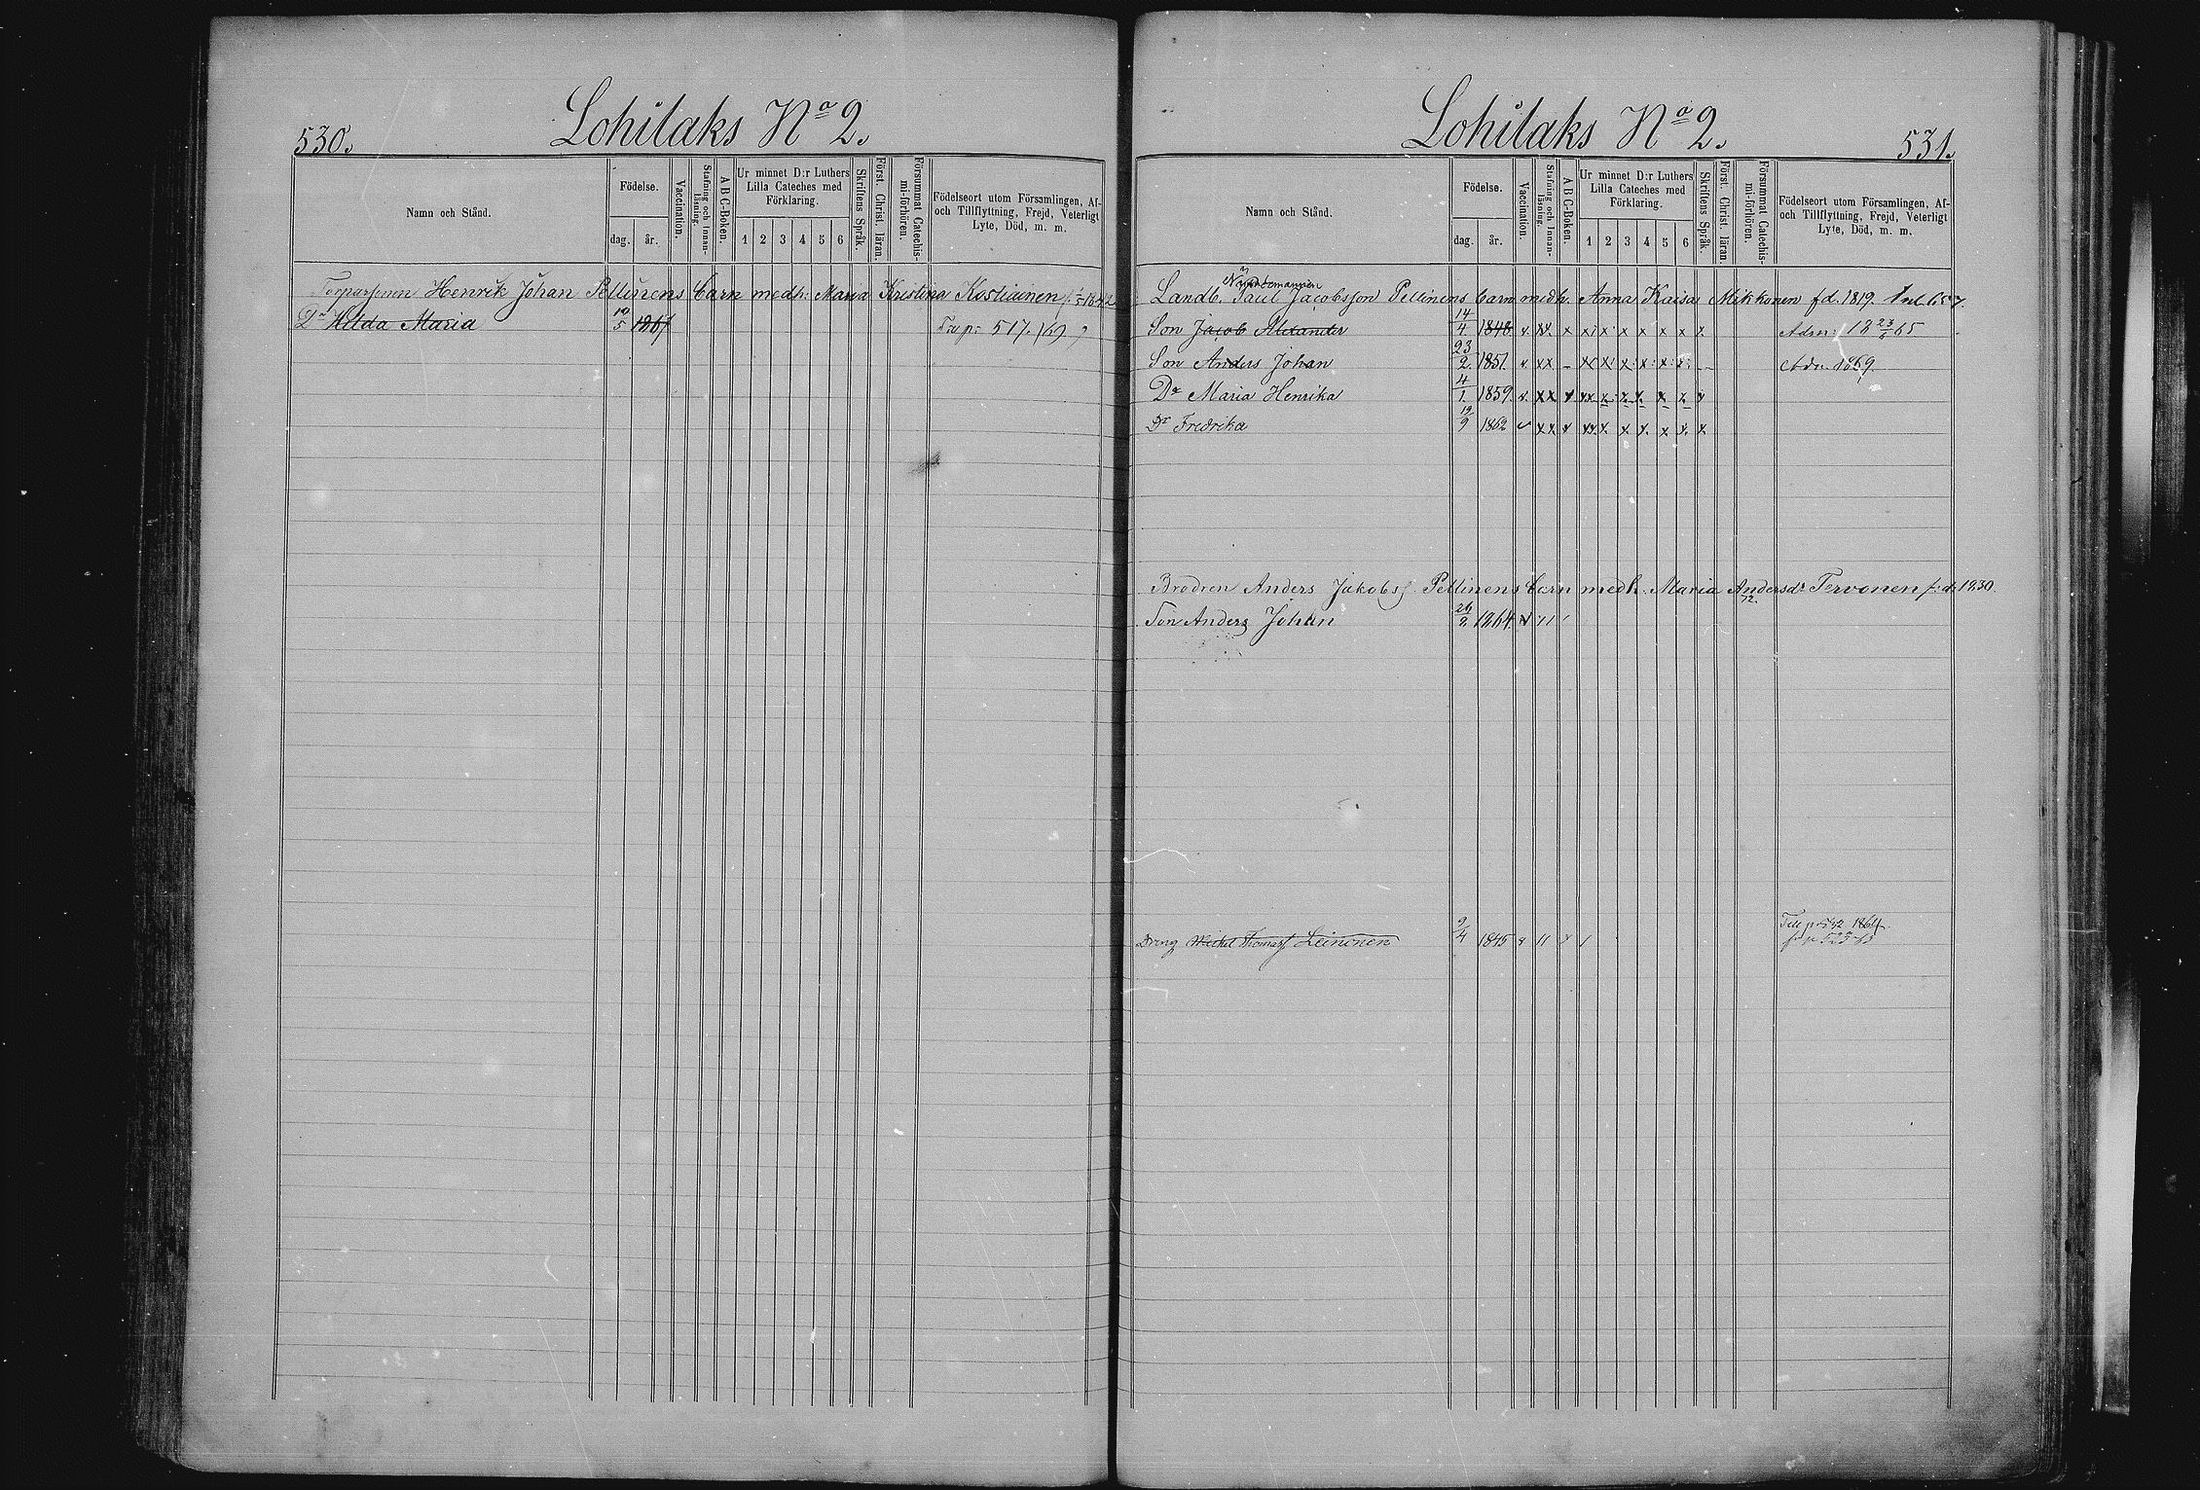 530.
Lohilaks No 2.
Namn och Stånd.
Födelse.
dag. år.
Vaccination.
Stafning och Innan-läsning.
A B C-Boken.
Ur minnet D:r Luthers Lilla Cateches med Förklaring.
1 2 3 4 5 6
Skriftens Språk.
Först. Christ. läran.
Försummat Catechis-mi-förhören.
Födelseort utom Församlingen, Af-
och Tillflyttning, Frejd, Veterligt
Lyte, Död, m. m.
Henrik Johan Pellinens barn medh: Maria Kristina Kostiainen
Dr Hilda Maria 10/5 1867 517. /69.
Lohilaks No 2.
531.
Namn och Stånd.
Födelse.
dag. år.
Vaccination.
Stafning och Innan-läsning.
A B C-Boken.
Ur minnet D:r Luthers Lilla Cateches med Förklaring.
1 2 3 4 5 6
Skriftens Språk.
Först. Christ. läran
Försummat Catechis-mi-förhören.
Födelseort utom Församlingen, Af-
och Tillflyttning, Frejd, Veterligt
Lyte, Död, m. m.
Nämdemannen
Landb. Paul Jacobsson Pellinens barn medh. Anna Kaisa Mikkonen fd. 1819.
Son Jacob Alexander 14/4 1848. Adm: 18 23/6 65
Son Anders Johan 23/2 1851. Adm. 1869.
Dr Maria Henrika 4/1 1859.
Dr Fredrika 19/9 1862
Brodren Anders Jakobss. Pellinens barn medh. Maria Andersdr Tervonen f: d: 1830.
Son Anders Johan 26/2 1864.
Dreng Michel Thomass Leinonen 9/4 1845 542 1864